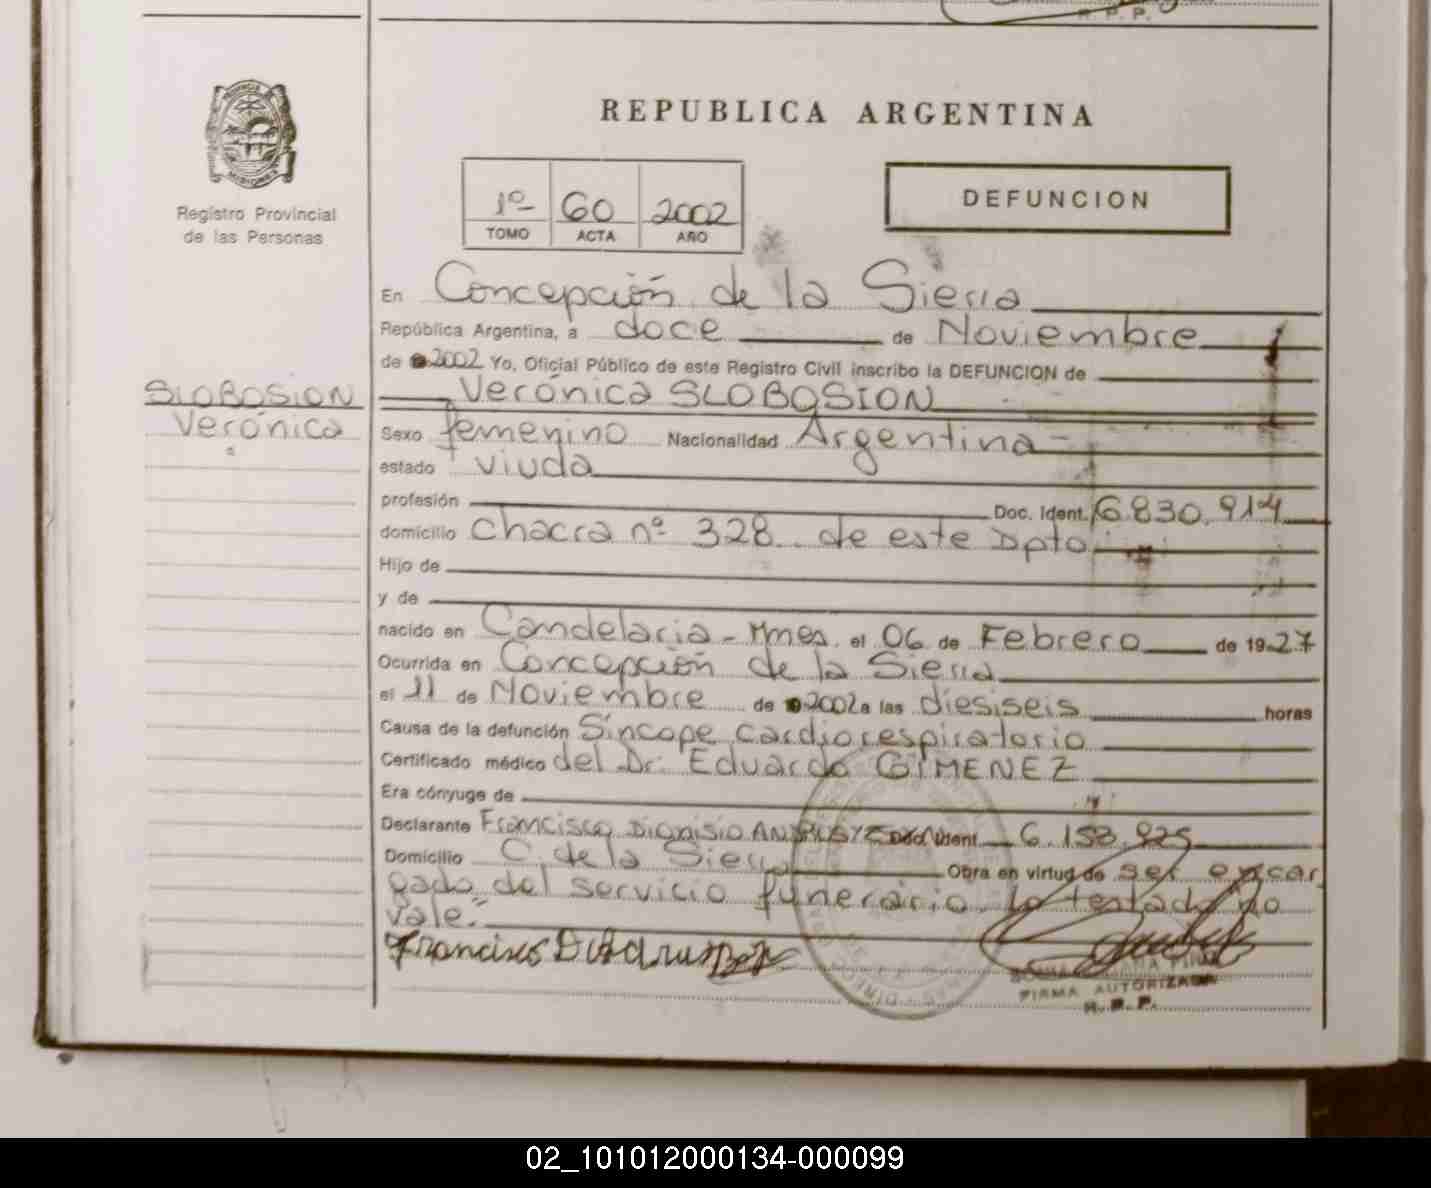 R. P. P.
REPUBLICA ARGENTINA
PROVINCIA DE
MISIONES
Registro Provincial
de las Personas
1º 60 2002
TOMO ACTA AÑO
DEFUNCION
En Concepción de la Sierra
República Argentina, a doce de Noviembre
de 2002 Yo, Oficial Público de este Registro Civil inscribo la DEFUNCION de
Verónica SLOBOSION
SLOBOSION
Verónica
Sexo femenino Nacionalidad Argentina
estado viuda
profesión Doc. Ident. 6.830.914
domicilio chacra nº 328 de este Dpto
Hijo de
y de
nacido en Candelaria - Mnes. el 06 de Febrero de 1927
Ocurrida en Concepción de la Sierra
el 11 de Noviembre de 2002 a las diesiseis horas
Causa de la defunción Síncope cardiorespiratorio
Certificado médico del Dr. Eduardo GIMENEZ
Era cónyuge de
Declarante Francisco Dionisio Doc. Ident. 6.158.925
Domicilio C. de la Sierra Obra en virtud de ser encar
gado del servicio funerario. Lo testado no
vale."
Francisco D
FIRMA AUTORIZADA
R. P. P.
02_101012000134-000099